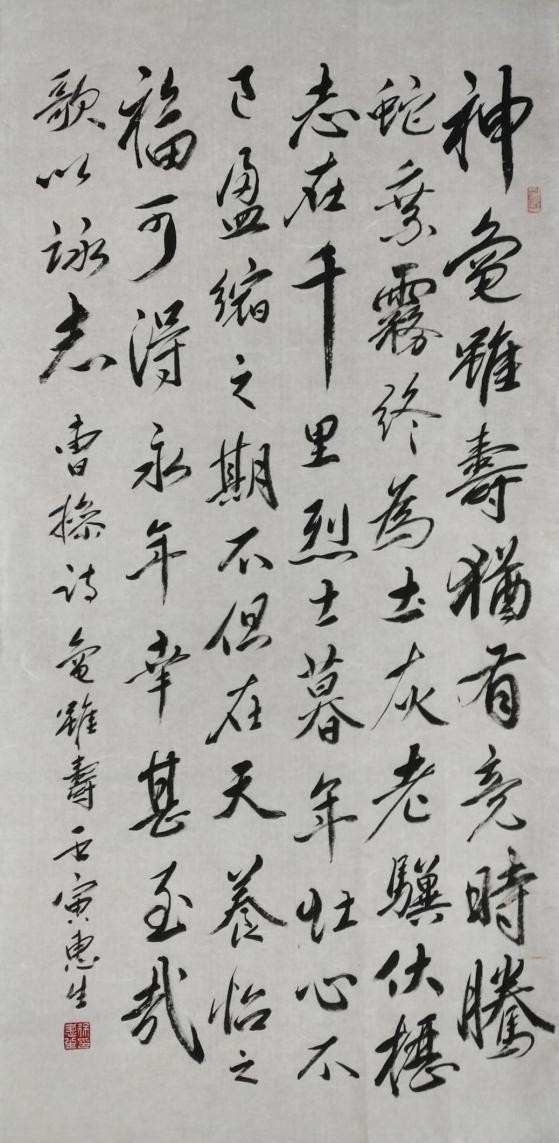 神龜雖壽猶有竟時騰
蛇乘霧終為土灰老驥伏櫪
志在千里烈士暮年壯心不
已盈縮之期不但在天養怡之
福可得永年幸甚至哉
歌以詠志 曹操詩龜雖壽 壬寅惠生